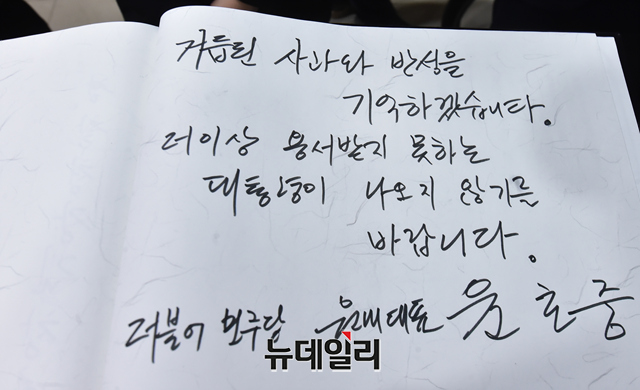 거듭된 사과와 반성을
기억하겠습니다.
더이상 용서받지 못하는
대통령이 나오지 않기를
바랍니다.
더불어 민주당 원내대표 윤호중
뉴데일리